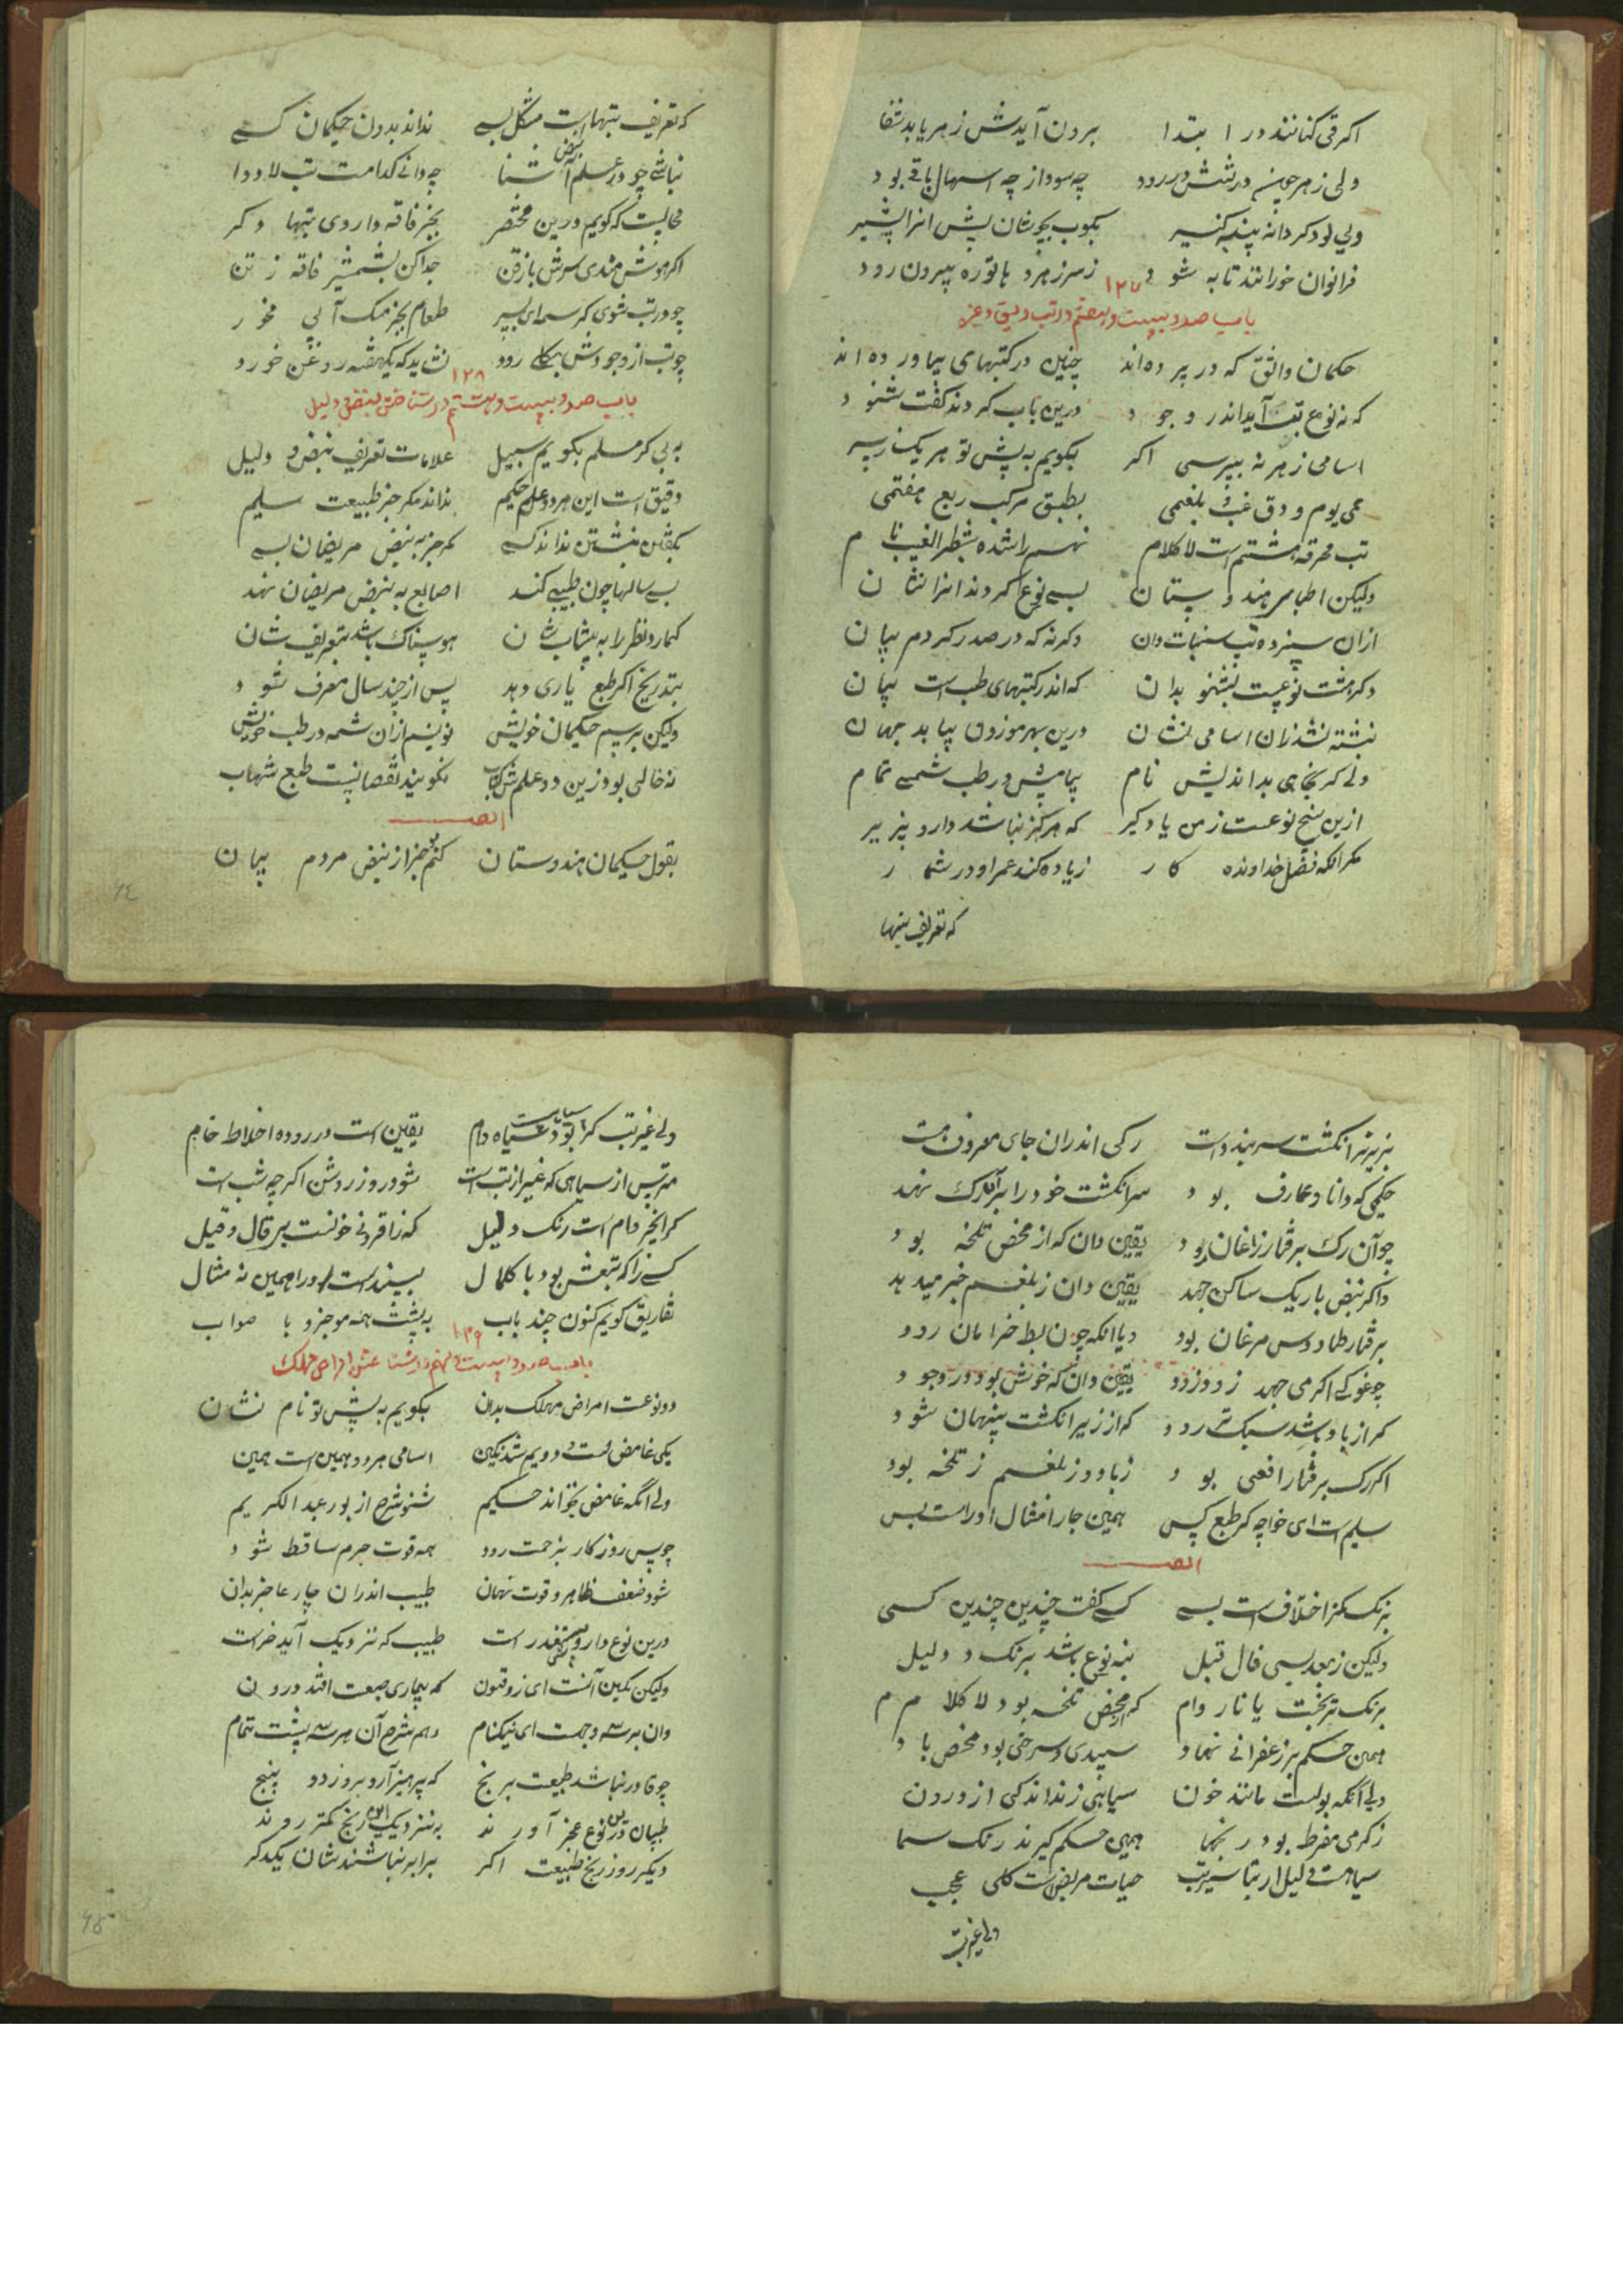 اگر قی کنانند در ابتدا برون آیدش زهر یابد شفا
ولی زهر چون در تنش در رود چه سود از چه اسهال باقی بود
ولی بود کر دانه پنبه گیر بکوب بجوشان پس انرا بشیر
فراوان خورانند تا به شود ز سر زهر دهاتوره بیرون رود
۱۲۷
باب صد و بیست و هفتم در تب دیق و غیره
حکیمان واثق که در پرده‌اند چنین در کتبهای بیاورده‌اند
که نه نوع تب آید اندر وجود درین باب کردند گفت شنود
اسامی ز هر نه بپرسی اگر بگویم به پیش تو هر یک ز سر
حمی یوم و دق غب و بلغمی بطبق مرکب ربع هفتمی
تب محرقه هشتم است لا کلام نهم را شده شطر الغب نام
ولیکن اطبا هندوستان بسی نوع کردند انرا نشان
ازان سیزده تب سنبات دان دگر نه که در صدر کردم بیان
دگر هشت نوعیست بشنو بدان که اندر کتبهای طب است بیان
نبشته نشد زان اسامی نشان درین بهر موزون بیابد جهان
ولی گر بخواهی بدانیش نام بیابیش در طب شمسی تمام
ازین پنج نوعست ز من یاد گیر که هرگز نباشد دارو پذیر
مگر انکه فضل خداونده کار زیاده کند عمر او در شمار
که تعریف تبها
که تعریف تبها است مشکل بسی نداند بدون حکیمان کسی
نباشی چو در علم نبض آشنا چه دانی کدامست تب لا دوا
محالیست که گویم درین مختصر بجز فاقه داروی تبها دگر
اگر هوش مندی سرش باز زن جدا کن بشمشیر فاقه ز تن
چو در تب شوی گرسنه ای پسر طعام بجز نمک آبی مخور
چو تب از وجودش بکلی رود نشاید که یکهفته روغن خورد
۱۲۸
باب صد و بیست و هشتم در شناختن نبض و دلیل
به بی گر مسلم بگویم سبیل علامات تعریف نبض و دلیل
دقیق است این هر دو علم حکیم نداند مگر جز طبیعت سلیم
بگفتن نبشتن نداند کسی مگر جز به نبض مریضان بسی
بسی سالها چون طبیبی کند اصابع به نبض مریضان نهد
گمارد نظر را به پیشاب شان هوسناک باشد بتعریف شان
بتدریج اگر طبع یاری دهد پس از چند سال معرف شود
ولیکن برسم حکیمان خویش نویسم ازان شمه در طب خویش
نه خالی بود زین دو علم کتاب نگویند نقصانیست طبع شهاب
ایضا
بقول حکیمان هندوستان کنم خبر از نبض مردم بیان
۶۴
بزیر نر انگشت سر بند دست رگی اندران جای معروف هست
حکیمی که دانا و عارف بود سر انگشت خود را بر آن رگ نهد
چو آن رگ برفتار زاغان بود یقین دان که از محض تلخه بود
و اگر نبض باریک ساکن جهد یقین دان ز بلغم خبر میدهد
برفتار طاوس مرغان بود و یا انکه چون بط خرامان رود
چو غوکی اگر می جهد زود زود یقین دان که خونش بود در وجود
گر از باد باشد سبک تر رود که از زیر انگشت پنهان شود
اگر رگ برفتار افعی بود ز باد و ز بلغم ز تلخه بود
سلیم است ای خواجه گر طبع کس همین جا را مثال او راست بس
ایضا
برنگ کمز اختلاف است بسی کسی گفت چندین چندین کسی
ولیکن ز بعد بسی قال قیل بنه نوع باشد برنگ دلیل
برنگ ترنجست یا نار دام که از محض تلخه بود لا کلام
همین حکم بر زعفرانی نهاد سپیدی و سرخی بود محض باد
ولی انکه بولست مانند خون سیاهی زند اندکی از درون
ز گرمی مفرط بود رنجها همین حکم گیرند رنگ سما
حیات مریض است کلی عجب
ولی غیر تب
ولی غیر تب گر بود سیاه دام یقین است در روده اخلاط خام
مترس از سیاهی که غیر از تب است شود روز روشن اگر چه شب است
گر انجیر دام است رنگ دلیل که ز افزونی خونست بر قال و قیل
کسی را که تبعش بود با کمال پسندست او را همین نه مثال
تفاریق گویم کنون چند باب به پیشت همه موجز و با صواب
۱۲۹
باب صد و بیست و نهم در شناختن امراض مهلک
دو نوعست امراض مهلک بدان بگویم به پیش تو نام نشان
یکی غامض است و دویم شد نکین اسامی هر دو همین است همین
ولی انکه غامض بخواند حکیم شنو شرح از پور عبد الکریم
چو پس روزگار بزحمت رود همه قوت جرم ساقط شود
شود ضعف ظاهر و قوت نهان طبیب اندران چار عاجز بدان
درین نوع دارو است طبیب که نزدیک آید خر است
ولیکن نکین آنست ای ذوفنون که بیماری صعب افتد درون
وان بر سه وجهست ای نیکنام دهم شرح آن هر سه پیشت تمام
چو قادر نباشد طبیعت برنج که پرهیز آرد بروز دو پنج
طبیبان درین نوع عجز آورند به نزدیک این رنج کمتر روند
دیگر روز رنج طبیعت اگر برابر نباشند شان یکدگر
۶۵